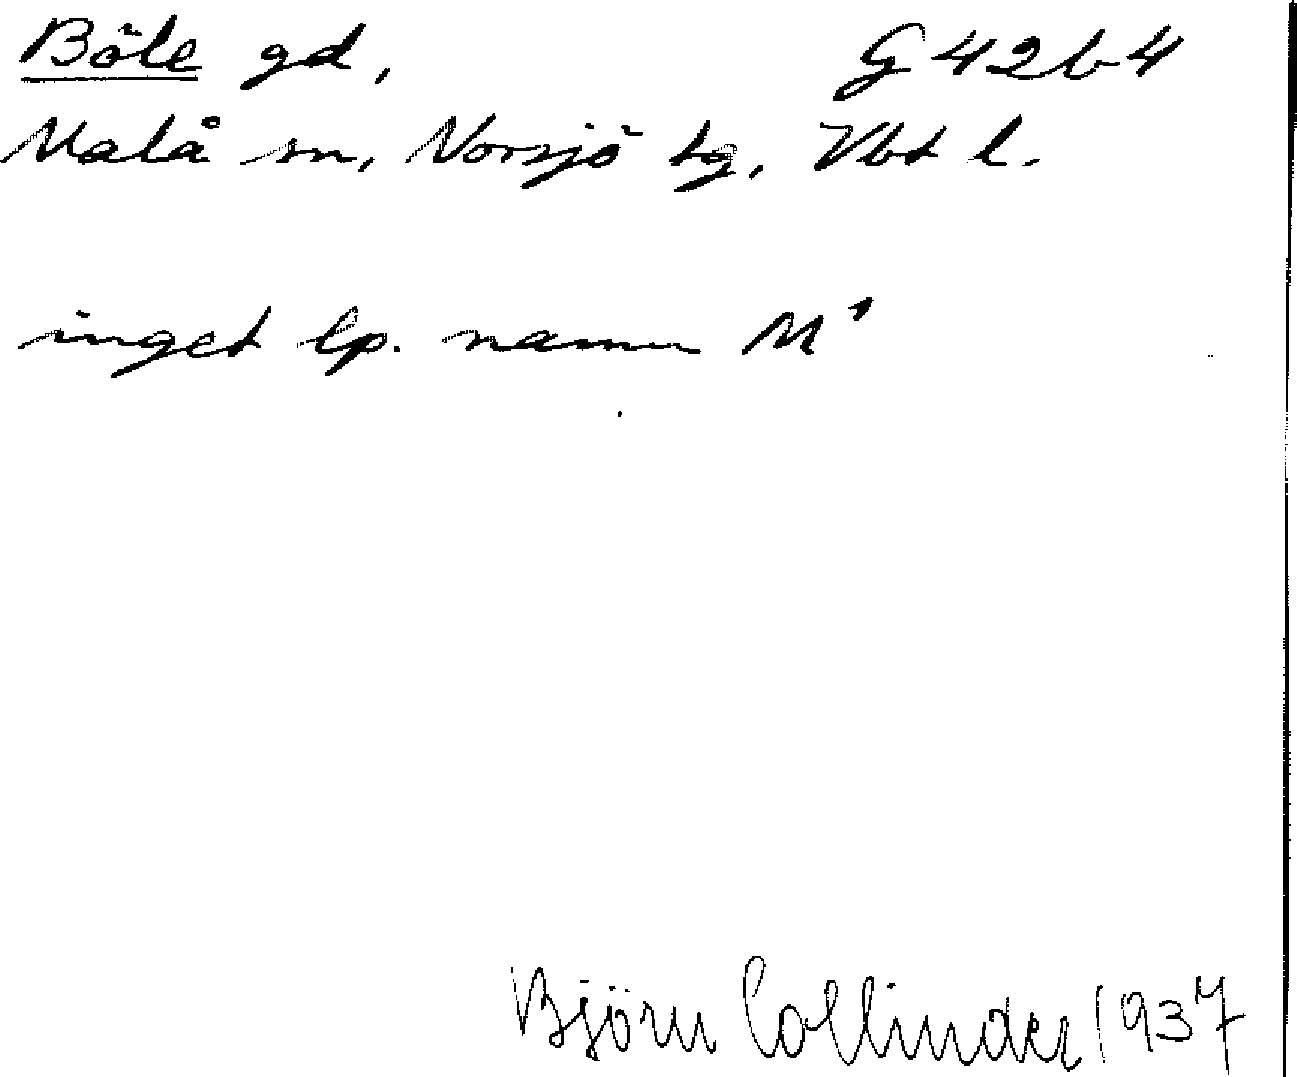 Böle gd, G42b4
Malå sn, Norsjö tg, Vbt l.
inget lp. namn M¹
Björn Collinder 1937